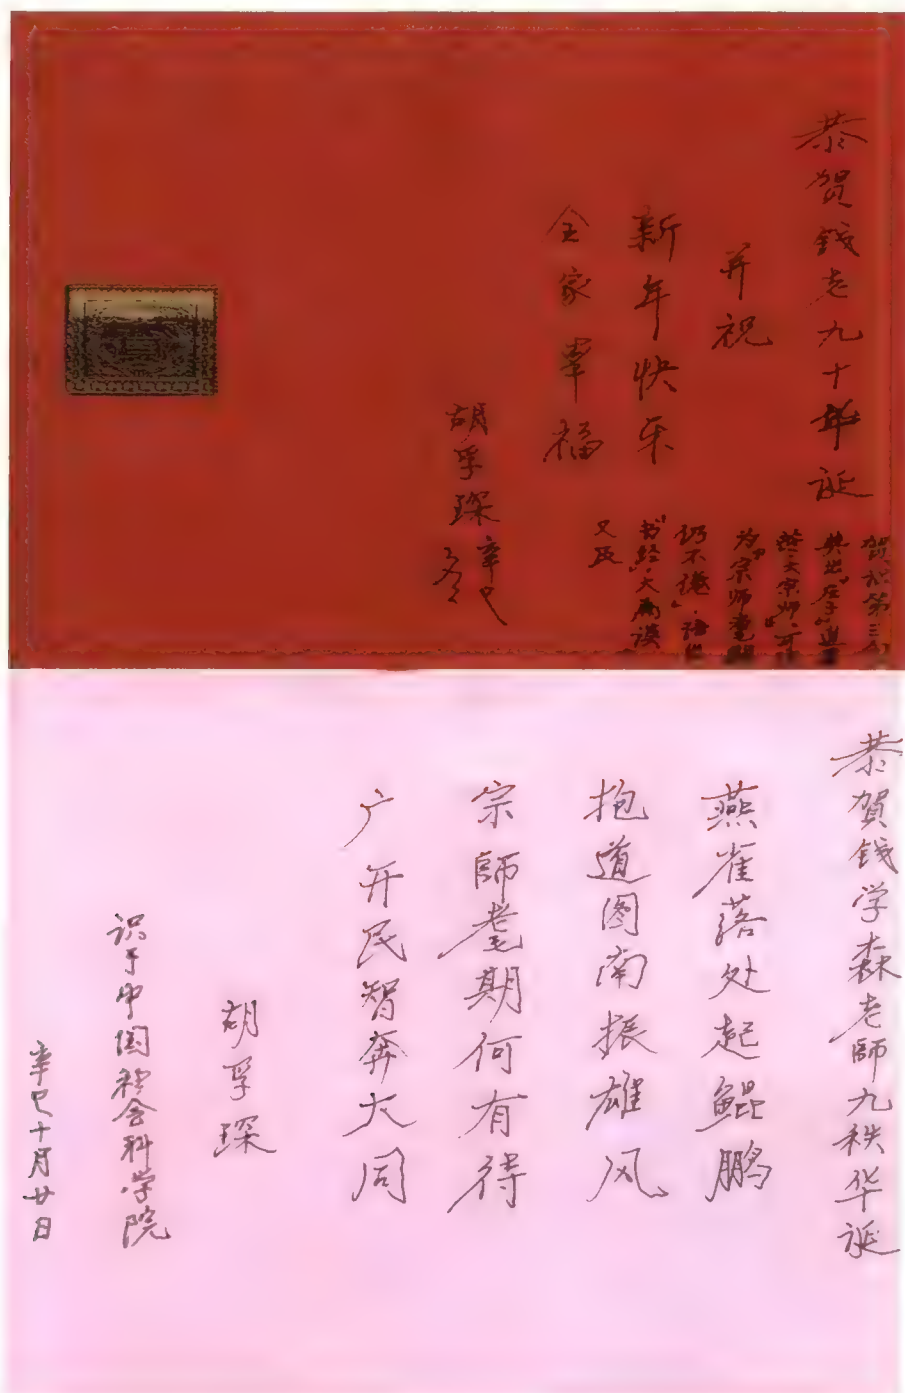 恭贺钱老九十华诞
并祝
新年快乐
全家幸福
胡孚琛
辛巳冬
贺诗第三句
典出"庄子"
大宗师
为"宗师耄期
仍不倦",语出
书经·大禹谟
又及
恭賀钱学森老師九秩华诞
燕雀落处起鲲鹏
抱道图南振雄风
宗師耄期何有待
广开民智奔大同
胡孚琛
识于中国社会科学院
辛巳十月廿日